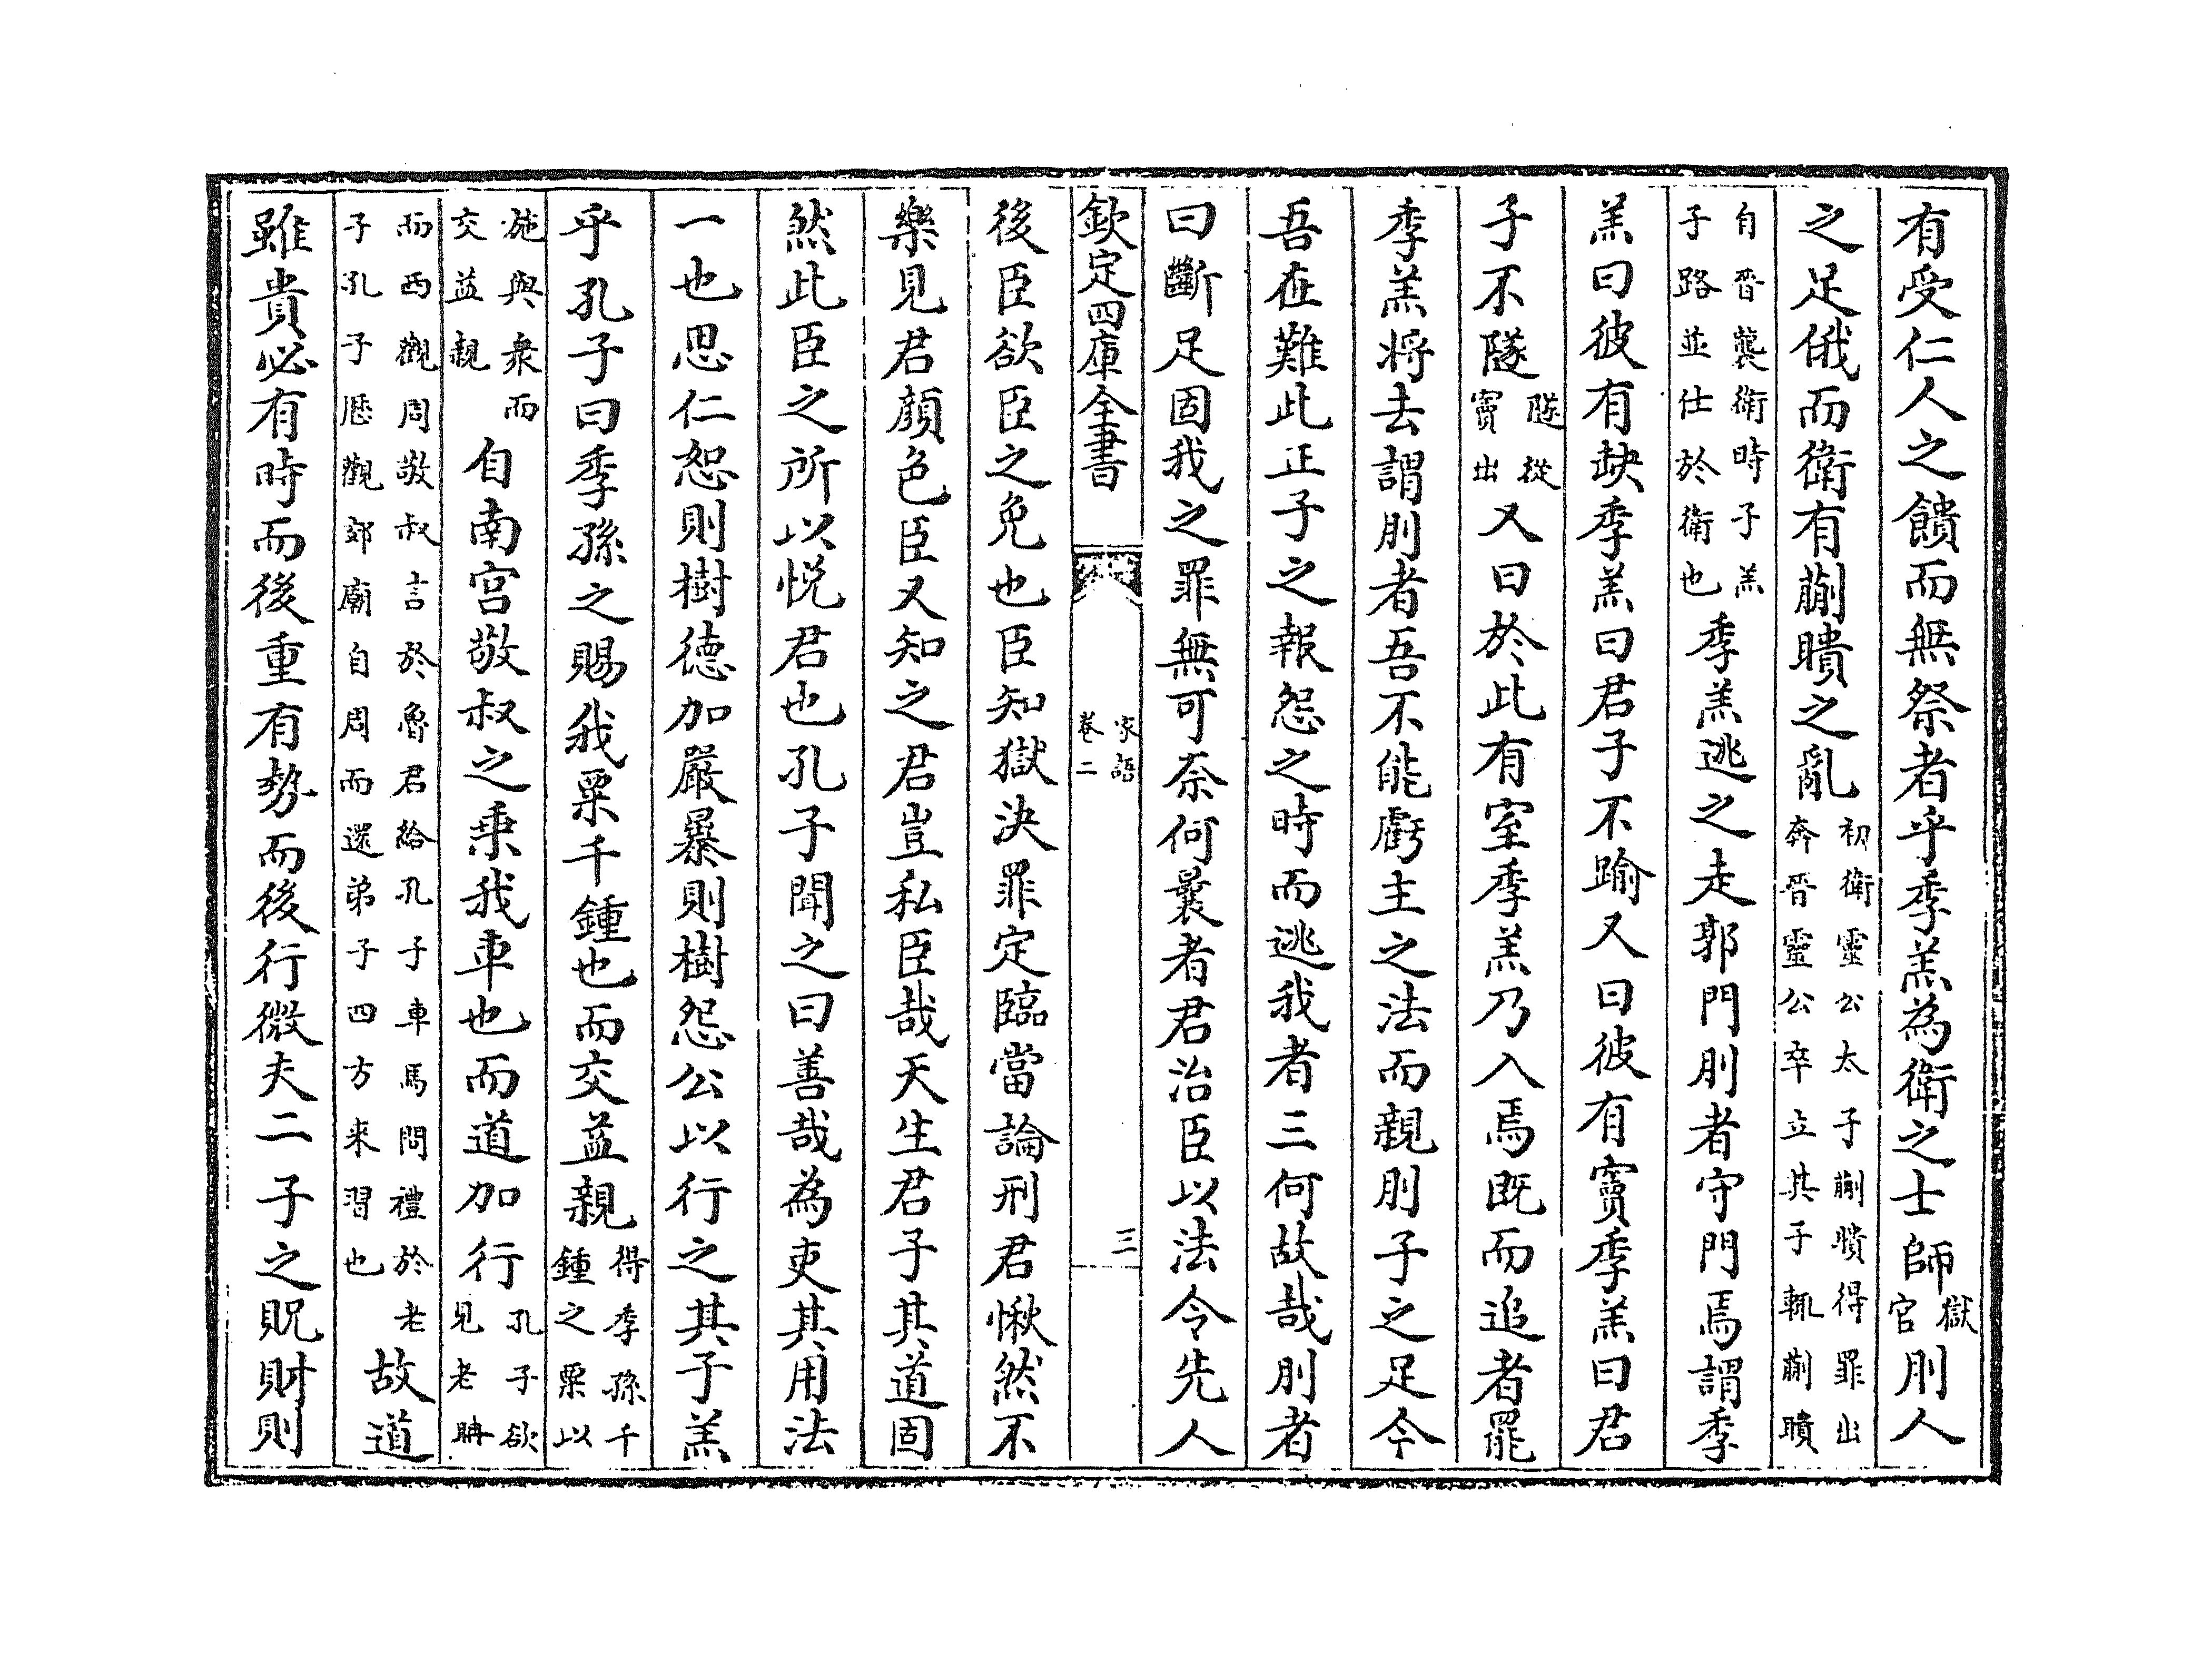 有受仁人之饋而無祭者乎季羔為衛之士師獄官刖人
之足俄而衛有蒯聵之亂初衛靈公太子蒯聵得罪出奔晉靈公卒立其子輒蒯聵
自晉襲衛時子羔子路並仕於衛也季羔逃之走郭門刖者守門焉謂季
羔曰彼有缺季羔曰君子不踰又曰彼有竇季羔曰君
子不隧隧從竇出又曰於此有室季羔乃入焉既而追者罷
季羔將去謂刖者吾不能虧主之法而親刖子之足今
吾在難此正子之報怨之時而逃我者三何故哉刖者
曰斷足固我之罪無可奈何曩者君治臣以法令先人
欽定四庫全書
家語
卷二
三
後臣欲臣之免也臣知獄決罪定臨當論刑君愀然不
樂見君顏色臣又知之君豈私臣哉天生君子其道固
然此臣之所以悅君也孔子聞之曰善哉為吏其用法
一也思仁恕則樹德加嚴暴則樹怨公以行之其子羔
乎孔子曰季孫之賜我粟千鍾也而交益親得季孫千鍾之粟以
施與衆而交益親自南宮敬叔之乗我車也而道加行孔子欲見老聃
而西觀周敬叔言於魯君給孔子車馬問禮於老子孔子歷觀郊廟自周而還弟子四方來習也故道
雖貴必有時而後重有勢而後行微夫二子之貺財則